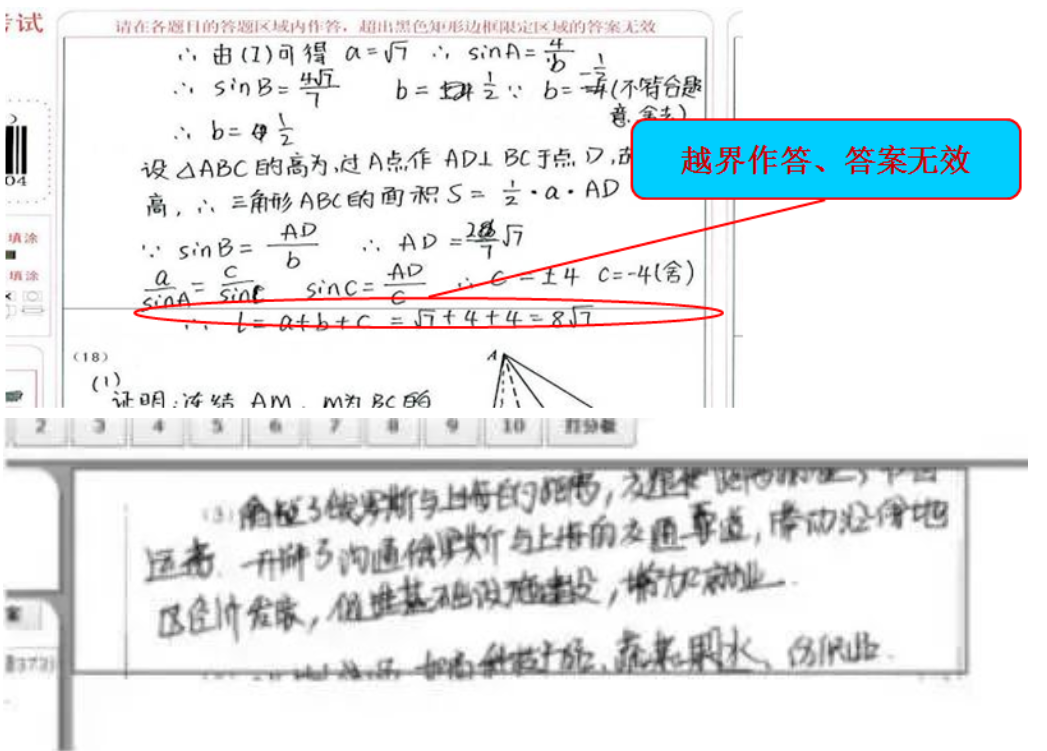 考试
请在各题目的答题区域内作答，超出黑色矩形边框限定区域的答案无效
∴ 由(I)可得 a=√7 ∴ sinA=4/b
∴ sinB=4√7/7 b= 1/2 ∵ b=-1/2(不符合题
意,舍去)
∴ b= 1/2
设△ABC的高为,过A点作AD⊥BC于点D,
高, ∴ 三角形ABC的面积S= 1/2·a·AD
越界作答、答案无效
∵ sinB= AD/b ∴ AD= √7
a/sinA = c/sinC sinC= AD/c ∴ C=±4 C=-4(舍)
∴ l=a+b+c =√7+4+4=8√7
04
填涂
填涂
(18)
(1)
证明:连结AM, M为BC的
A
2 3 4 5 6 7 8 9 10 打分板
(3) 缩短了俄罗斯与上海的距离,
运输 开辟了沟通俄罗斯与上海的交通要道,带动沿线地
区经济发展,促进基础设施建设,增加就业.
蔬菜水果